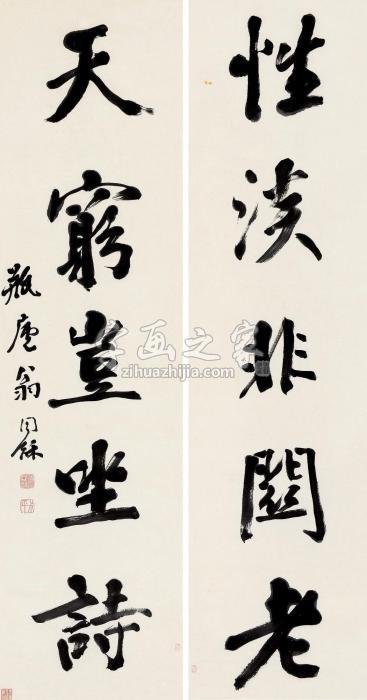 性淡非關老
天窮豈坐詩
瓶廬翁同龢
书画之家
zihuazhijia.com